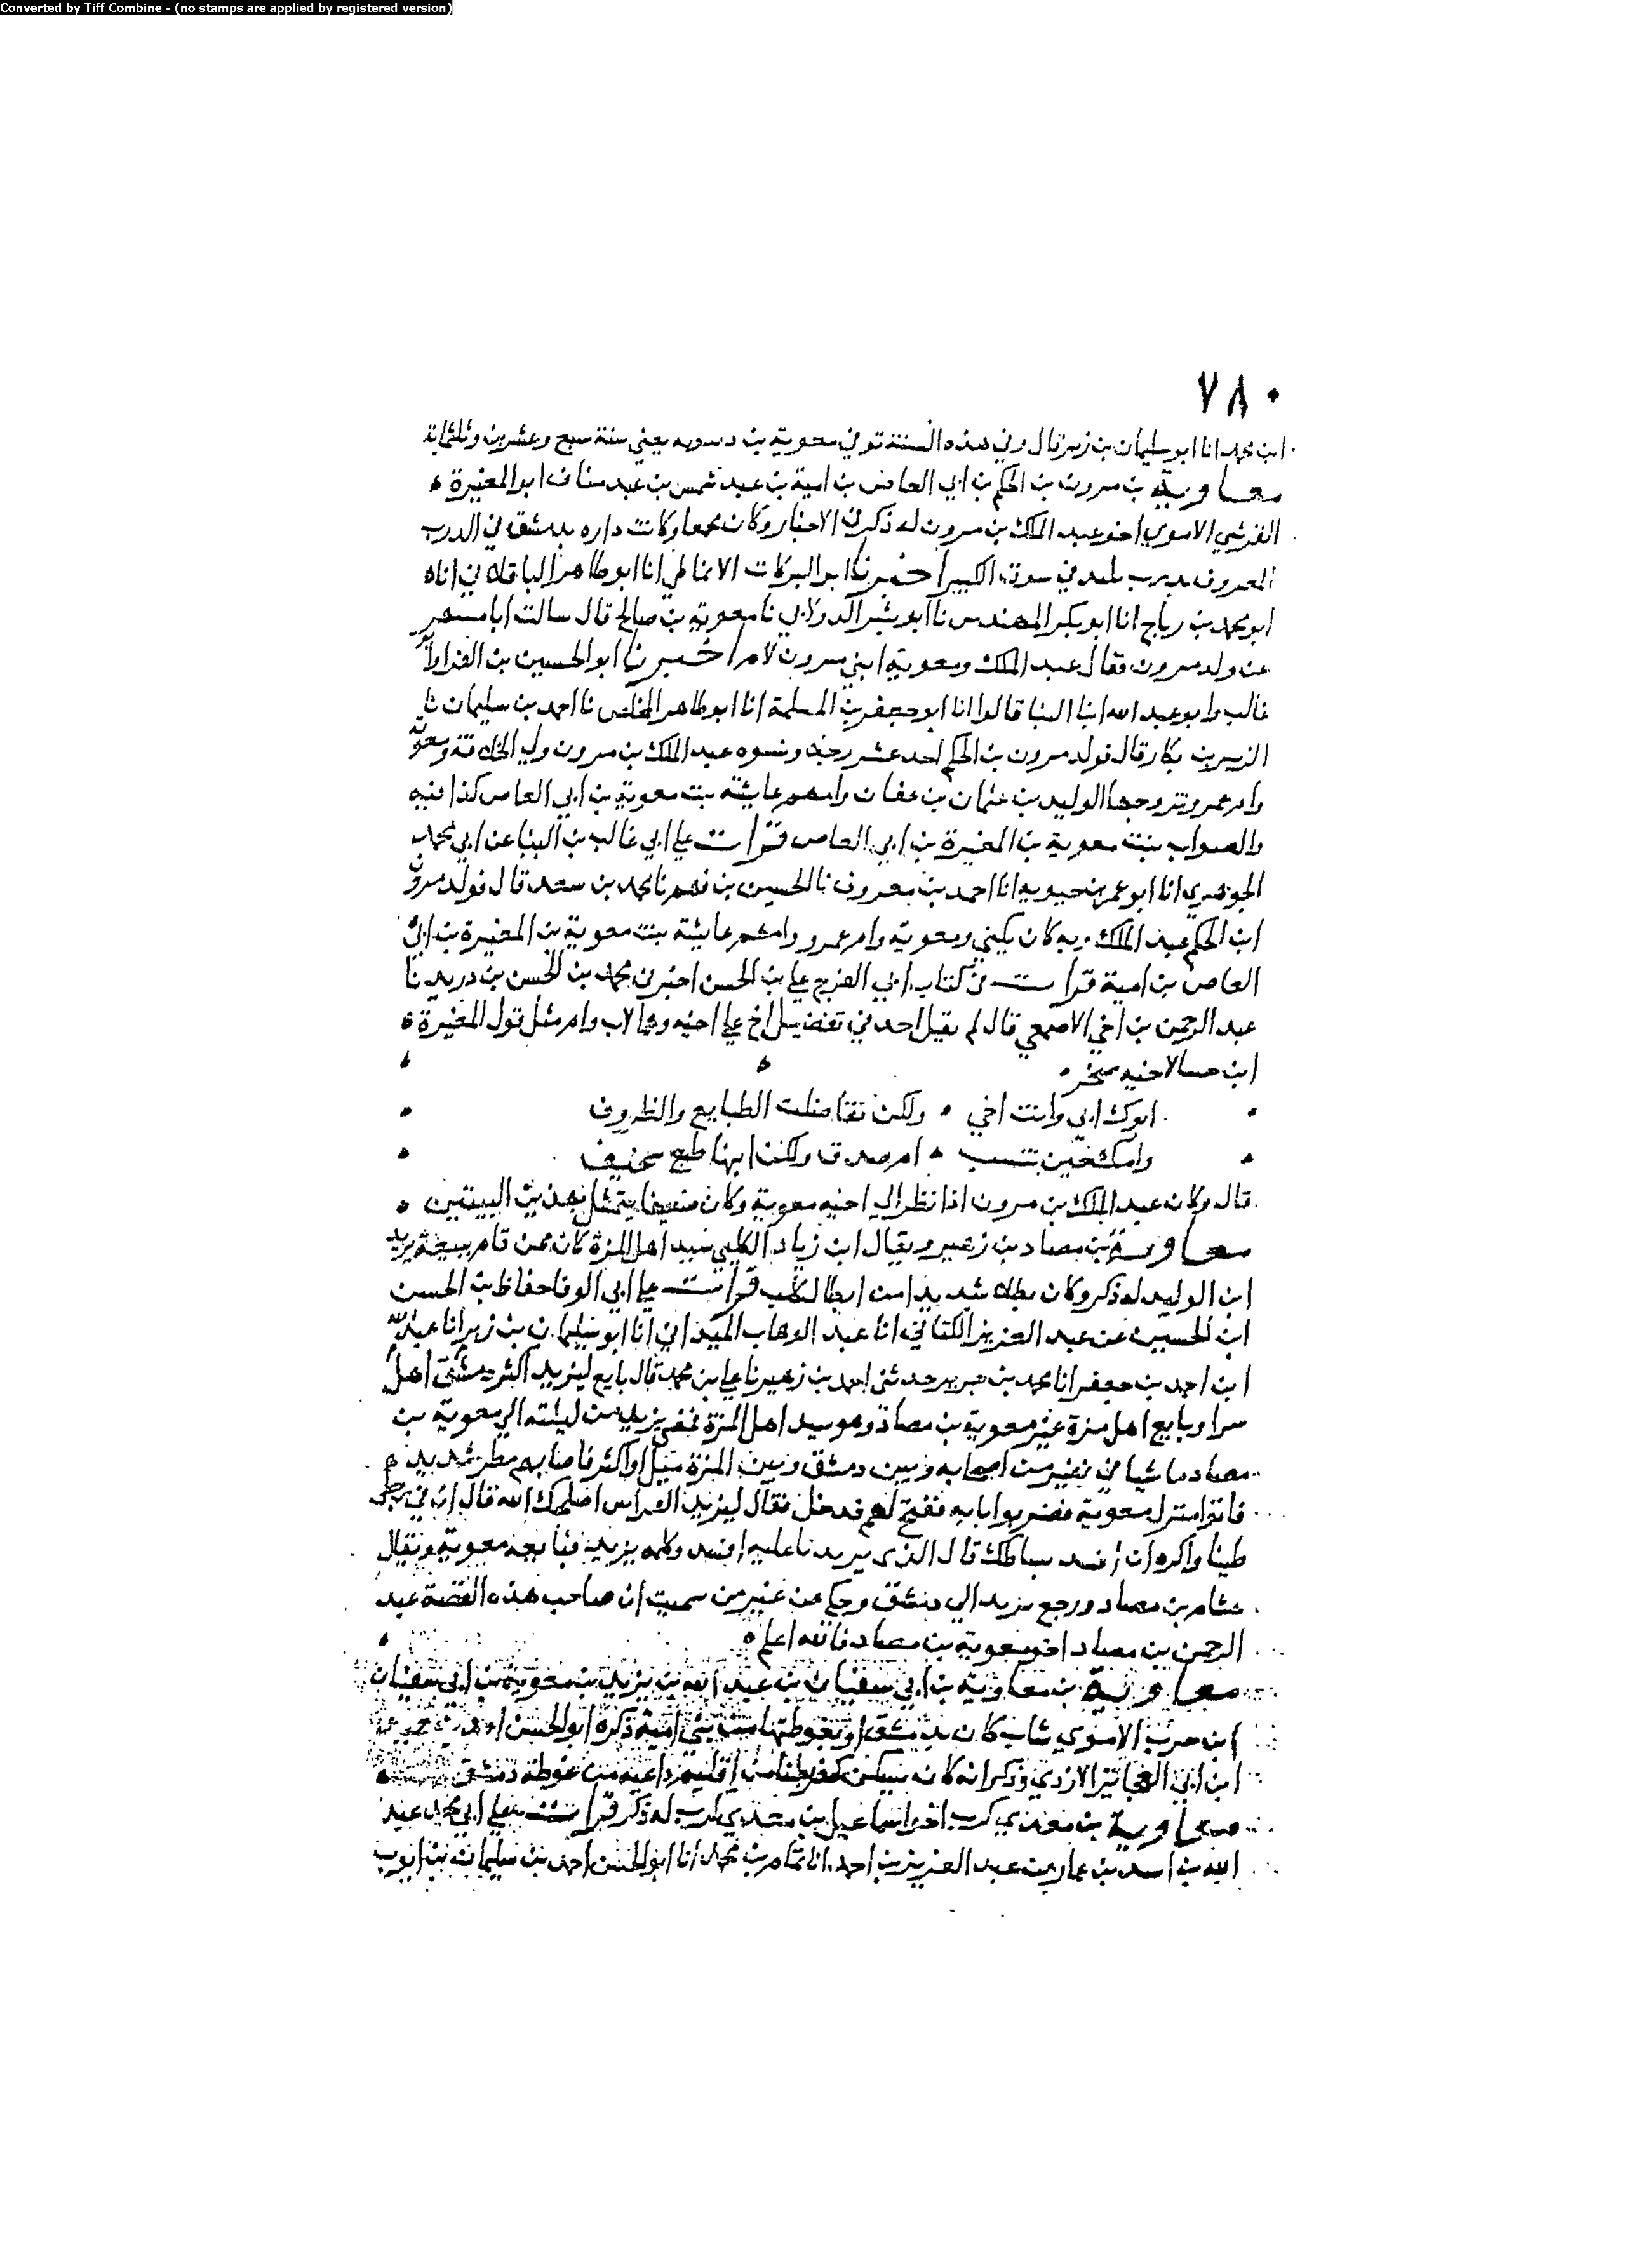 Converted by Tiff Combine - (no stamps are applied by registered version)
٧٨٠
ابن محمد انا ابو سليمان بن زبر قال وفي هذه السنة توفي معوية بن دسويه يعني سنة سبع وعشرين وثلثماية
معاوية بن مرون بن الحكم بن ابي العاص بن امية بن عبد شمس بن عبد مناف ابو المغيرة
القرشي الاموي اخو عبد الملك بن مرون له ذكر في الاخبار وكان محمقا وكانت داره بدمشق في الدرب
المعروف بدرب في سوق الكبير اخبرنا ابو البركات الانماطي انا ابو طاهر الباقلاني انا
ابو محمد بن رباح انا ابو بكر المهندس نا ابو بشر الدولابي نا معوية بن صالح قال سالت ابا مسهر
عن ولد مرون فقال عبد الملك ومعوية ابني مرون لام اخبرنا ابو الحسين بن الفرا وابو
غالب وابو عبد الله ابنا البنا قالوا انا ابو جعفر بن المسلمة انا ابو طاهر المخلص نا احمد بن سليمان نا
الزبير بن بكار قال فولد مرون بن الحكم احد عشر رجلا ونسوه عبد الملك بن مرون ولي الخلافة ومعوية
وام عمرو تزوجها الوليد بن عثمان بن عفان وامهم عايشة بنت معوية بن ابي العاص كذا فيه
والصواب بنت معوية بن المغيرة بن ابي العاص قرات علي ابي غالب بن البنا عن ابي محمد
الجوهري انا ابو عمر بن حيويه انا احمد بن معروف نا الحسين بن فهم نا محمد بن سعد قال فولد مرون
ابن الحكم عبد الملك وبه كان يكني ومعوية وام عمرو وامهم عايشة بنت معوية بن المغيرة بن ابي
العاص بن امية قرات في كتاب ابي الفرج علي بن الحسن اخبرني محمد بن الحسن بن دريد نا
عبد الرحمن بن اخي الاصمعي قال لم يقل احد في تفضيل اخ علي اخيه وهما لاب وام مثل قول المغيرة
ابن حبنا لاخيه صخر
ابوك ابي وانت اخي ولكن تفاضلت الطبايع والظروف
وامك حين تنسب ام صدق ولكن ابنها طبع سخيف
قال وكان عبد الملك بن مرون اذا نظر الي اخيه معوية وكان ضعيفا يتمثل بهذين البيتين
معاوية بن مصاد بن زهير ويقال ابن زياد الكلبي سيد اهل المزة كان ممن قام ببيعة يزيد
ابن الوليد له ذكر وكان بطلا شديدا من ابطال كلب قرات علي ابي الوفا حفاظ بن الحسن
ابن الحسين عن عبد العزيز الكتاني انا عبد الوهاب الميداني انا ابو سليمان بن زبر انا عبد الله
ابن احمد بن جعفر انا محمد بن جرير حدثني احمد بن زهير نا علي بن محمد قال بايع ليزيد اكثر دمشق اهل
سرا وبايع اهل مزة غير معوية بن مصاد وهو سيد اهل المزة فمضي يزيد من ليلته الي معوية بن
مصاد ماشيا في نفير من اصحابه وبين دمشق وبين المزة ميل او اكثر فاصابهم مطر شديد
فاتوا منزل معوية فضربوا بابه ففتح لهم فدخل فقال ليزيد الفراش اصلحك الله قال ان في رجلي
طينا واكره ان افسد بساطك قال الذي يريدنا عليه افسد وكلمه يزيد فبايعه معوية ويقال
هشام بن مصاد ورجع يزيد الي دمشق وحكي عن غير من سميت ان صاحب هذه القصة عبد
الرحمن بن مصاد اخو معوية بن مصاد فالله اعلم
معاوية بن معاوية بن ابي سفيان بن عبد الله بن يزيد بن معوية بن ابي سفيان
ابن حرب الاموي شاب كان بدمشق او بغوطتها من بني امية ذكره ابو الحسن احمد بن حميد
ابن ابي العجايز الازدي وذكر انه كان يسكن كفربطنا من اقليم داعية من غوطة دمشق
معاوية بن معدي كرب اخو اسماعيل بن معدي كرب له ذكر قرات علي ابي محمد عبد
الله بن اسد بن عمار عن عبد العزيز بن احمد انا تمام بن محمد انا ابو الحسن احمد بن سليمان بن ايوب